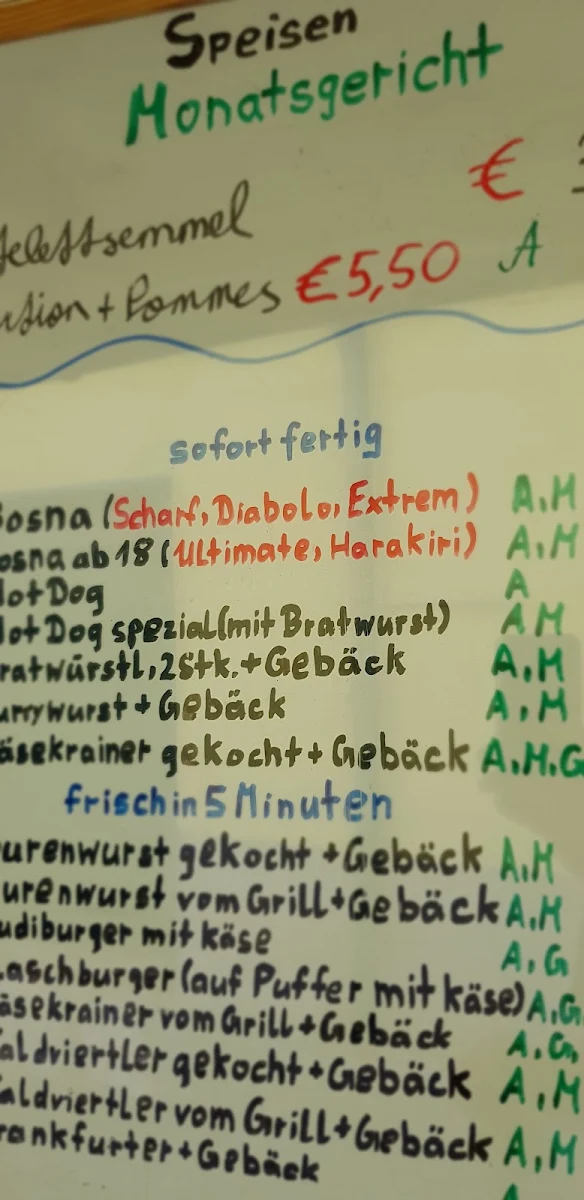 Speisen
Monatsgericht
€
elettsemmel
tion + Pommes €5,50 A
sofort fertig
osna (Scharf, Diabolo, Extrem) A,M
osna ab 18 (Ultimate, Harakiri) A,M
ot Dog A
ot Dog spezial (mit Bratwurst) A M
ratwürstl, 2Stk. + Gebäck A,M
urrywurst + Gebäck A,M
äsekrainer gekocht + Gebäck A.M.G
frisch in 5 Minuten
urenwurst gekocht + Gebäck A,M
urenwurst vom Grill + Gebäck A,M
udiburger mit käse A,G
aschburger (auf Puffer mit käse) A,G
äsekrainer vom Grill + Gebäck A,G
aldviertler gekocht + Gebäck A,M
aldviertler vom Grill + Gebäck A,M
rankfurter + Gebäck